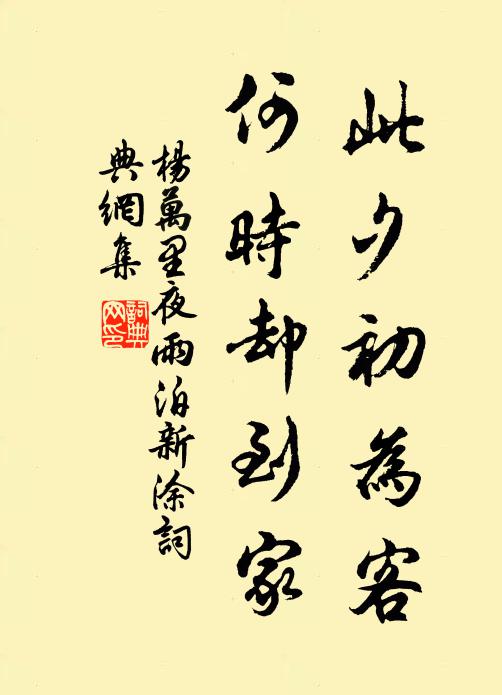 此夕初為客
何時却到家
楊萬里夜雨泊新淦詞
典網集
詞典網印